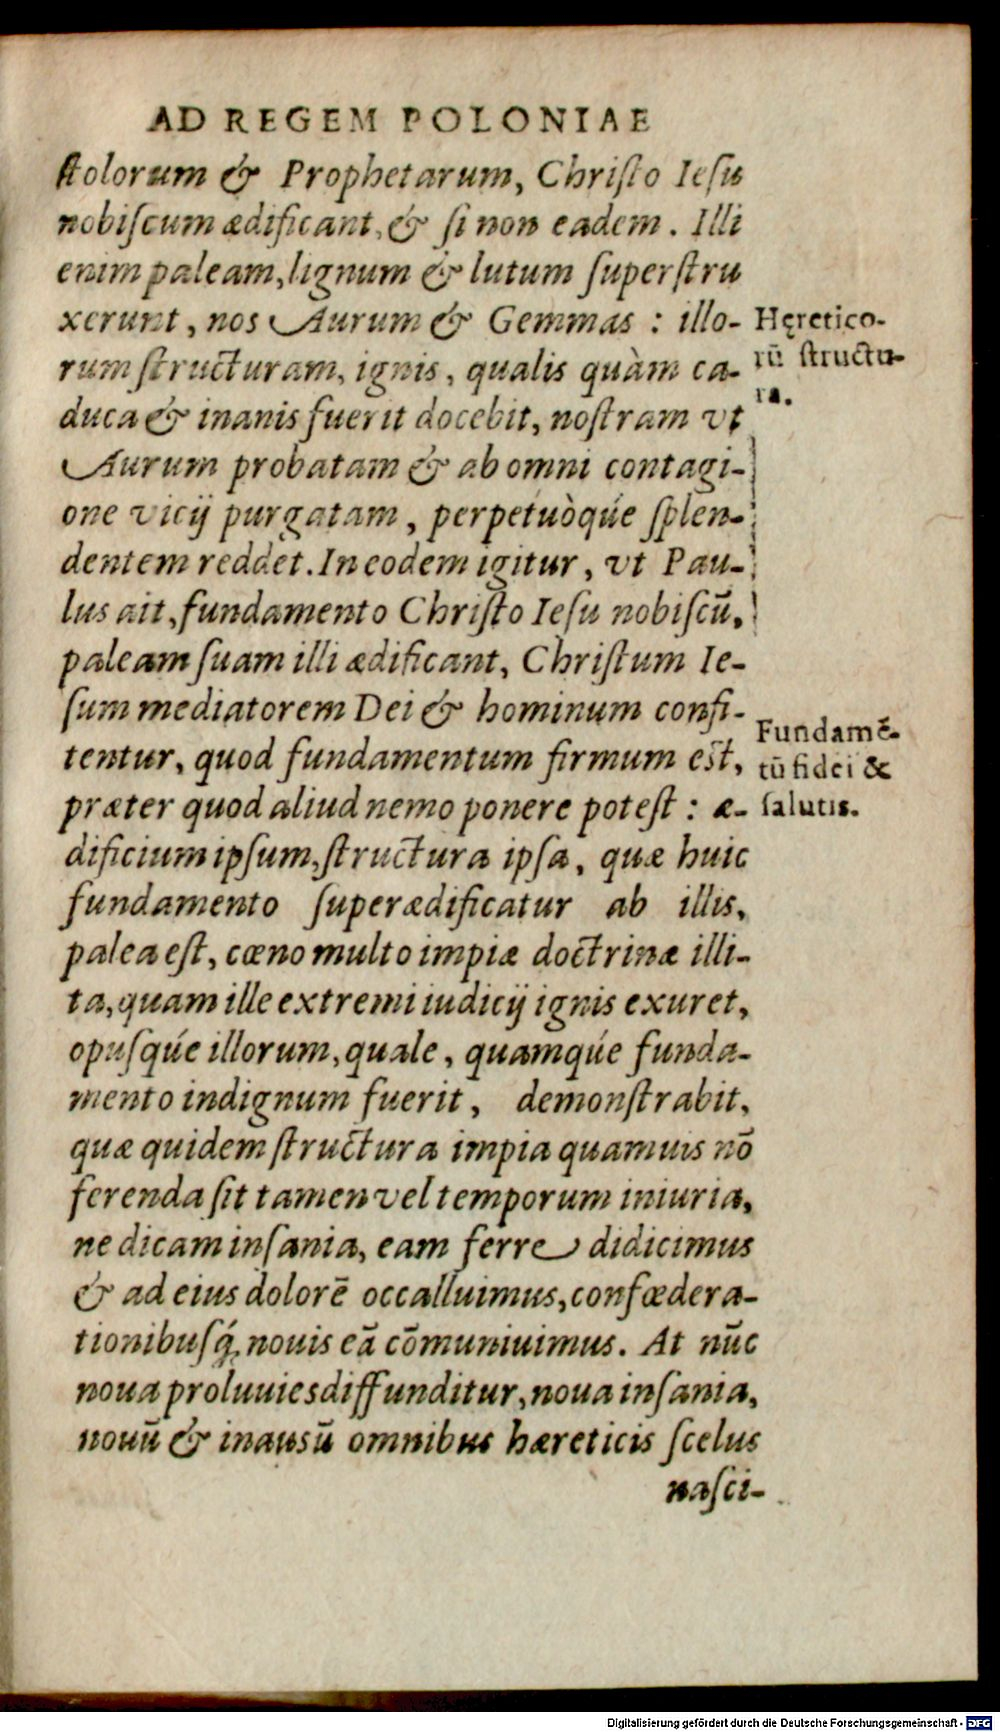 AD REGEM POLONIAE
ſtolorum & Prophetarum, Chriſto Ieſu
nobiſcum ædificant, & ſi non eadem. Illi
enim paleam, lignum & lutum ſuperſtru
xerunt, nos Aurum & Gemmas : illo-
rum ſtructuram, ignis, qualis quàm ca-
duca & inanis fuerit docebit, noſtram vt
Aurum probatam & ab omni contagi-
one vicij purgatam, perpetuòqúe ſplen-
dentem reddet. In eodem igitur, vt Pau-
lus ait, fundamento Chriſto Ieſu nobiſcū,
paleam ſuam illi ædificant, Chriſtum Ie-
ſum mediatorem Dei & hominum confi-
tentur, quod fundamentum firmum eſt,
præter quod aliud nemo ponere poteſt : æ-
dificium ipſum, ſtructura ipſa, quæ huic
fundamento ſuperædificatur ab illis,
palea eſt, cœno multo impiæ doctrinæ illi-
ta, quam ille extremi iudicij ignis exuret,
opuſqúe illorum, quale, quamqúe funda-
mento indignum fuerit, demonſtrabit,
quæ quidem ſtructura impia quamuis nō
ferenda ſit tamen vel temporum iniuria,
ne dicam inſania, eam ferre didicimus
& ad eius dolorē occalluimus, confœdera-
tionibuſq́; nouis eā cōmuniuimus. At nūc
noua proluuies diffunditur, noua inſania,
nouū & inausū omnibus hæreticis ſcelus
naſci-
Hęretico-
rū ſtructu-
ra.
Fundamē-
tū fidei &
ſalutis.
Digitalisierung gefördert durch die Deutsche Forschungsgemeinschaft - DFG